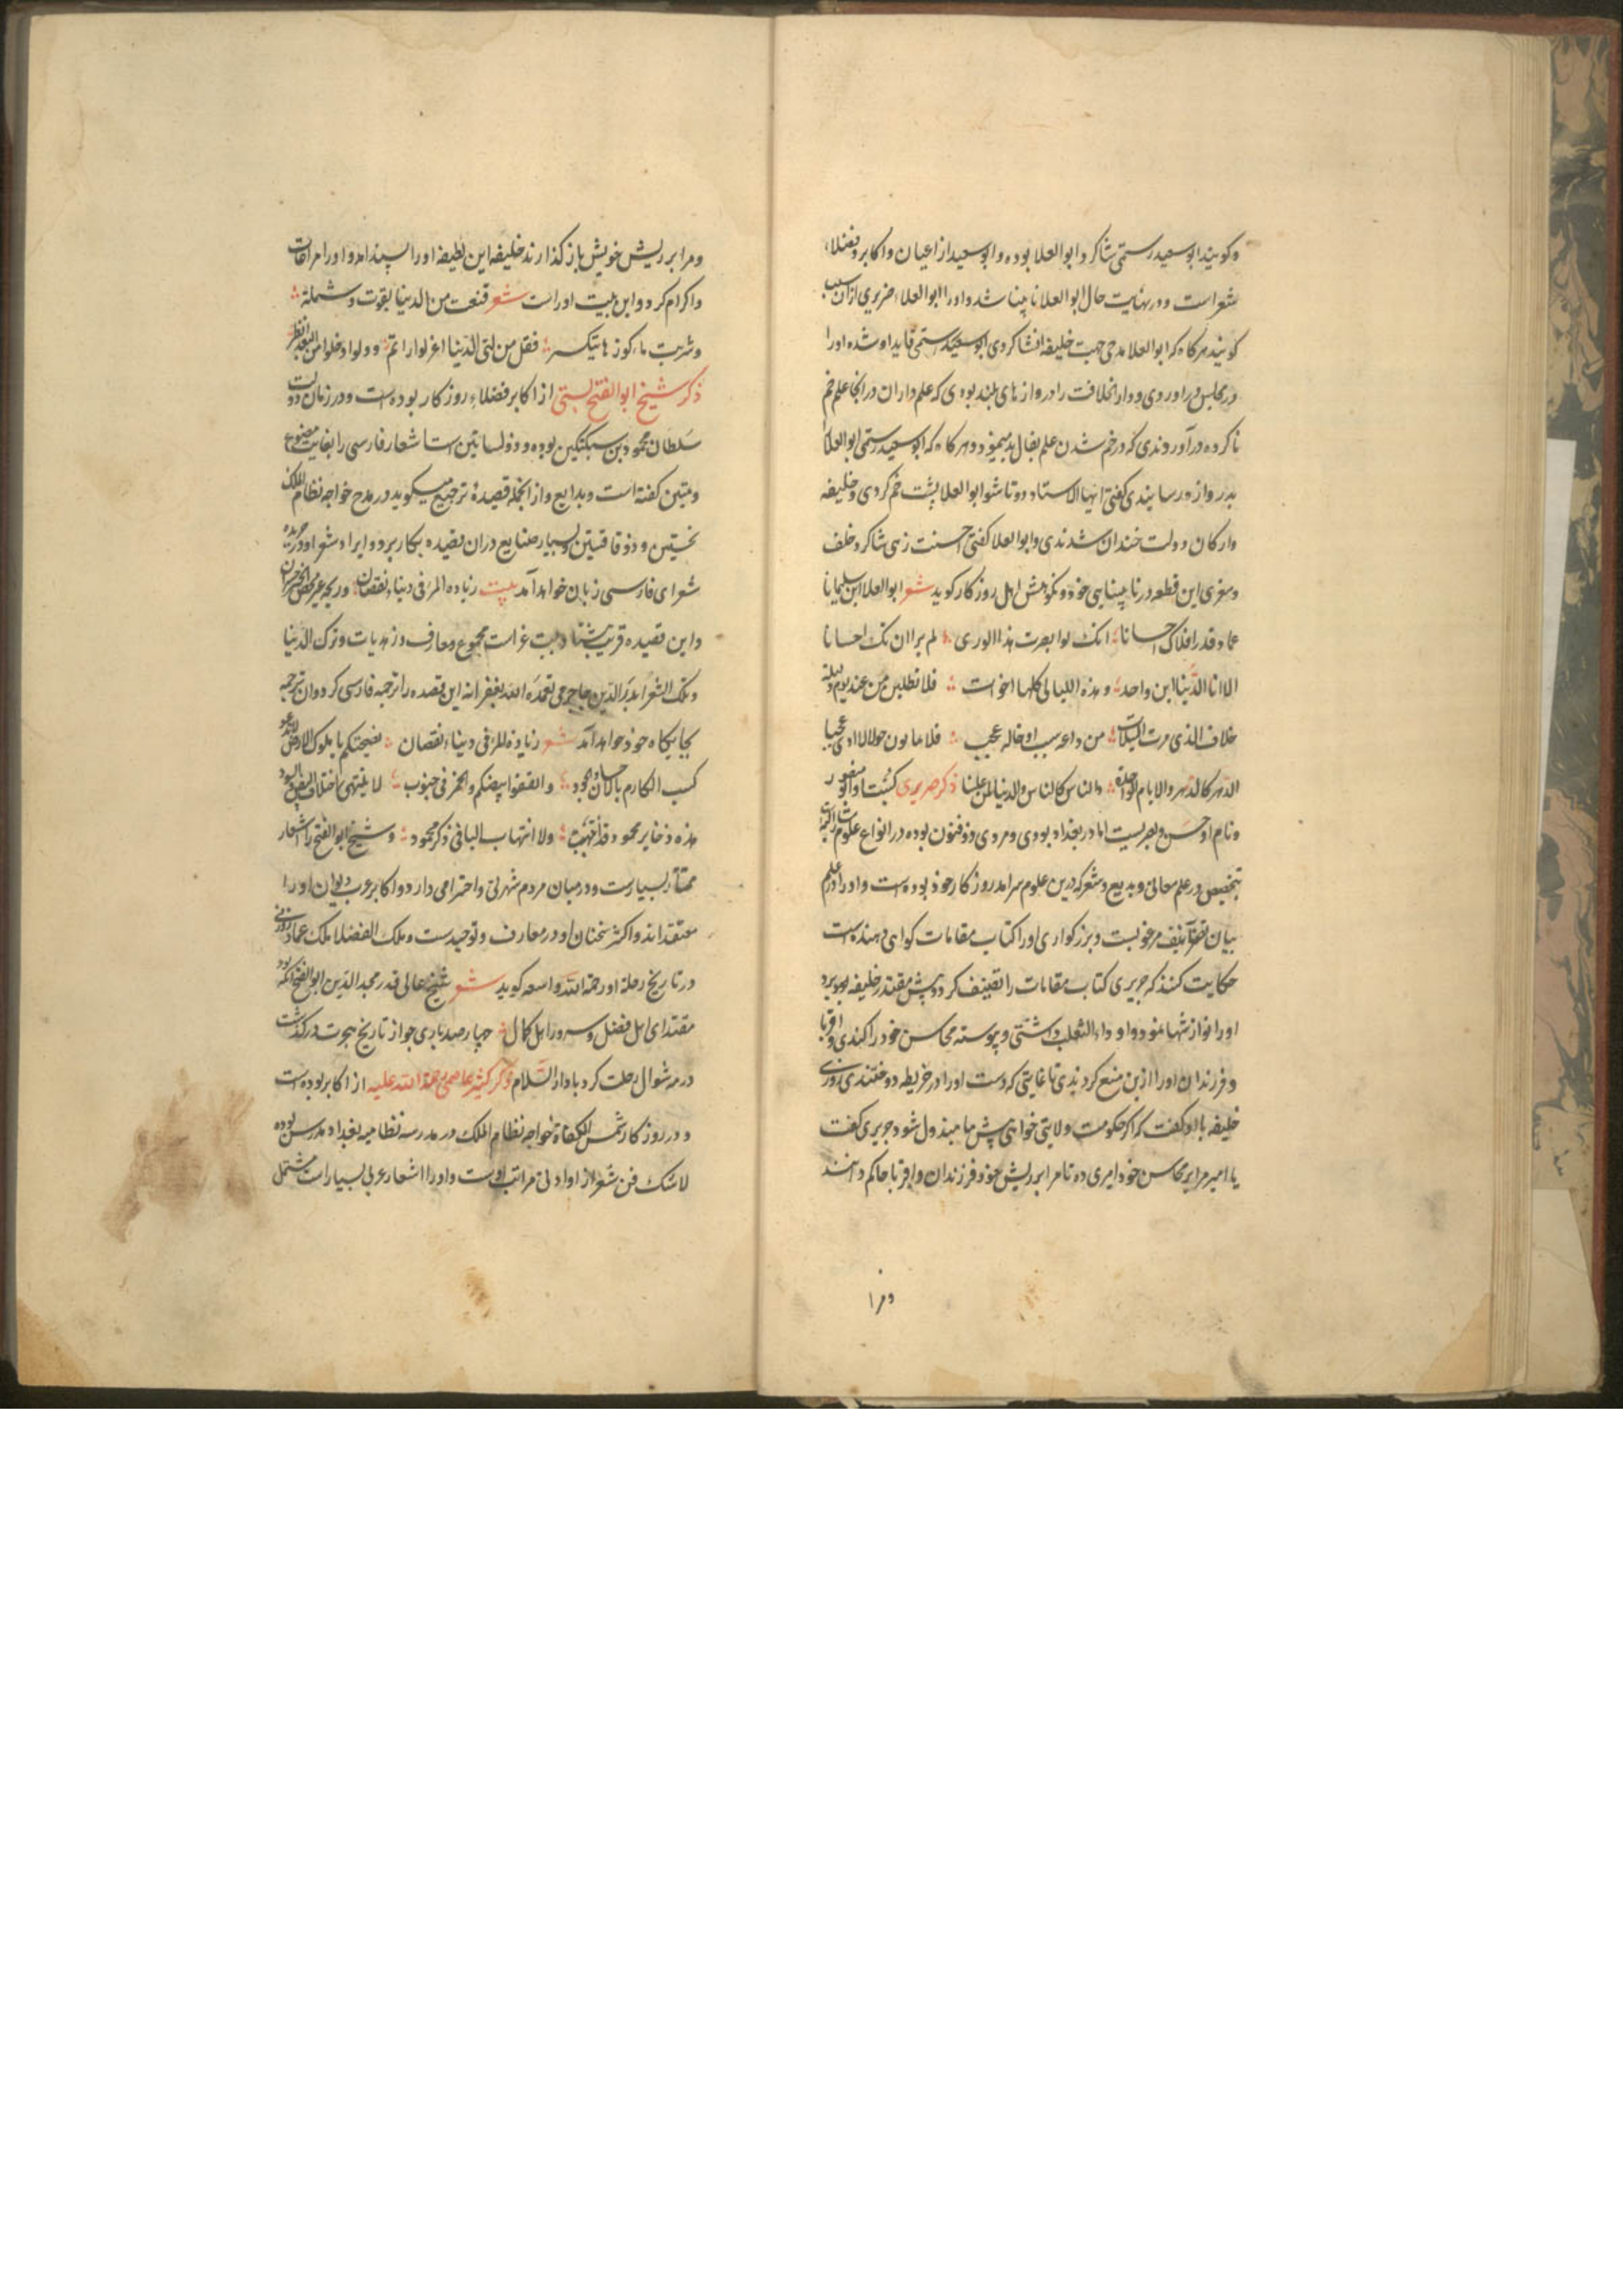 و کویند ابو سعید رستمی شاکرد ابو العلا بوده و ابو سعید از اعیان و اکابر و فضلاء
شعراست و در نهایت حال ابو العلا نابینا شد و او را ابو العلاء ضریری ازان سبب
کویند هرکاه که ابو العلا مدحی جهت خلیفه انشا کردی ابو سعید رستمی قاید او شده او را
در مجلس در آوردی و دار الخلافت را دروازهای بلند بودی که علم داران در انجا علم خم
نا کرده در آوردندی که در خم شدن علم بفال بد میبود و هرکاه که ابو سعید رستمی ابو العلا
بدروازه رسانیدی کفتی ایها الاستاد دوتا شو ابو العلا پشت خم کردی و خلیفه
و ارکان دولت خندان شدندی و ابو العلا کفتی احسنت زهی شاکرد خلف
و معری این قطعه در نابینایی خود و نکوهش اهل روزکار کوید شعر ابو العلا ابن سلیمانا
عماد قدر افلاک احسانا انک لو ابصرت هذا الوری لم یر انسانک احسانا
الا انا الدنیا ابن واحد و هذه اللیالی کلها اخوات فلا تطلبن من عند یوم ولیلة
خلاف الذی مرت به السنوات من داعه سبب او خاله عجب فلا ما بون حولا لا اری عجبا
الدهر کالدهر والایام واحدة والناس کالناس والدنیا لمن غلبا ذکر حریری کنیت او ابو منصور
و نام او حسن و بصریست اما در بغداد بودی و مردی ذو فنون بوده در انواع علوم
بتخصیص در علم معانی و بدیع و شعر که درین علوم سرامد روزکار خود بوده است و او را در علم
بیان تصانیف مرغوبست و بزرکواری او را کتاب مقامات کواهی دهنده است
حکایت کنند که حریری کتاب مقامات را تصنیف کرد و پیش مقتدر خلیفه برد
او را نوازشها نمود و او داء الثعلب داشتی و پیوسته محاسن خود را کندی و اقربا
و فرزندان او را ازین منع کردندی تا غایتی که دست او را در خریطه دوختندی روزی
خلیفه با او کفت که اکر حکومت ولایتی خواهی پیش ما مبذول شود حریری کفت
یا امیر مرا بر محاسن خود امیری ده تا مرا بر ریش خود فرزندان و اقربا حاکم دانند
و مرا
و مرا بر ریش خویش باز کذارند خلیفه این لطیفه او را پسند امد و او را مراعات
و اکرام کرد و این بیت او راست شعر قنعت من الدنیا بقوت و شملة
و شربت ماء کوزها یتکسر فقل من لبنی الدنیا اعزلوا من
ذکر شیخ ابو الفتح بستی از اکابر فضلاء روزکار بوده است و در زمان دولت
سلطان محمود بن سبکتکین بوده و ذو لسانین است اشعار فارسی را بغایت مصنوع
و متین کفته است و بدایع و از انجمله قصیده ترجیع میکوید در مدح خواجه نظام الملک
نخستین و ذو قافیتین و بسیار صنایع دران قصیده بکار برد و ایراد شعر او در جریده
شعرای فارسی زبان خواهد آمد بیت زیادة المرء فی دنیاه نقصان و ربحه غیر محض الخیر خسران
و این قصیده قریب هشتاد بیت غراست مجموع معارف و زهدیات و ترک الدنیا
و ملک الشعرا بدر الدین جاجرمی تغمده الله بغفرانه این قصیده را ترجمه فارسی کرد و ان ترجمه
بجایکاه خود خواهد آمد شعر زیادة للمرء فی دنیاه نقصان نصیحتکم یا ملوک الارض لا تدعوا
کسب المکارم بالاحسان والجود وانفقوا بیضکم والحمر فی جنوب لا ینتهی باختلاف البیض والسود
هذه ذخایر محمود قد انتهبت ولا انتهاب الباقی ذکر محمود و شیخ ابو الفتح را اشعار
ممتاز بسیارست و در میان مردم شهرتی و احترامی دارد و اکابر عرب دیوان او را
معتقد اند و اکثر سخنان او در معارف و توحیدست و ملک الفضلا ملک عماد زوزنی
در تاریخ رحلة او رحمة الله واسعه کوید شعر شیخ عالی قدر مجد الدین ابو الفتح آنکه بود
مقتدای اهل فضل و سرور اهل کمال چهارصد با سی جو از تاریخ هجرت درکذشت
در مه شوال رحلت کرد با دار السلام ذکر کثیر عاصمی رحمة الله علیه از اکابر بوده است
و در روزکار شمس الکفاة خواجه نظام الملک در مدرسه نظامیه بغداد مدرس بوده
لاشک فن شعر از اوادنی مراتب اوست و او را اشعار عربی بسیار است مشتمل